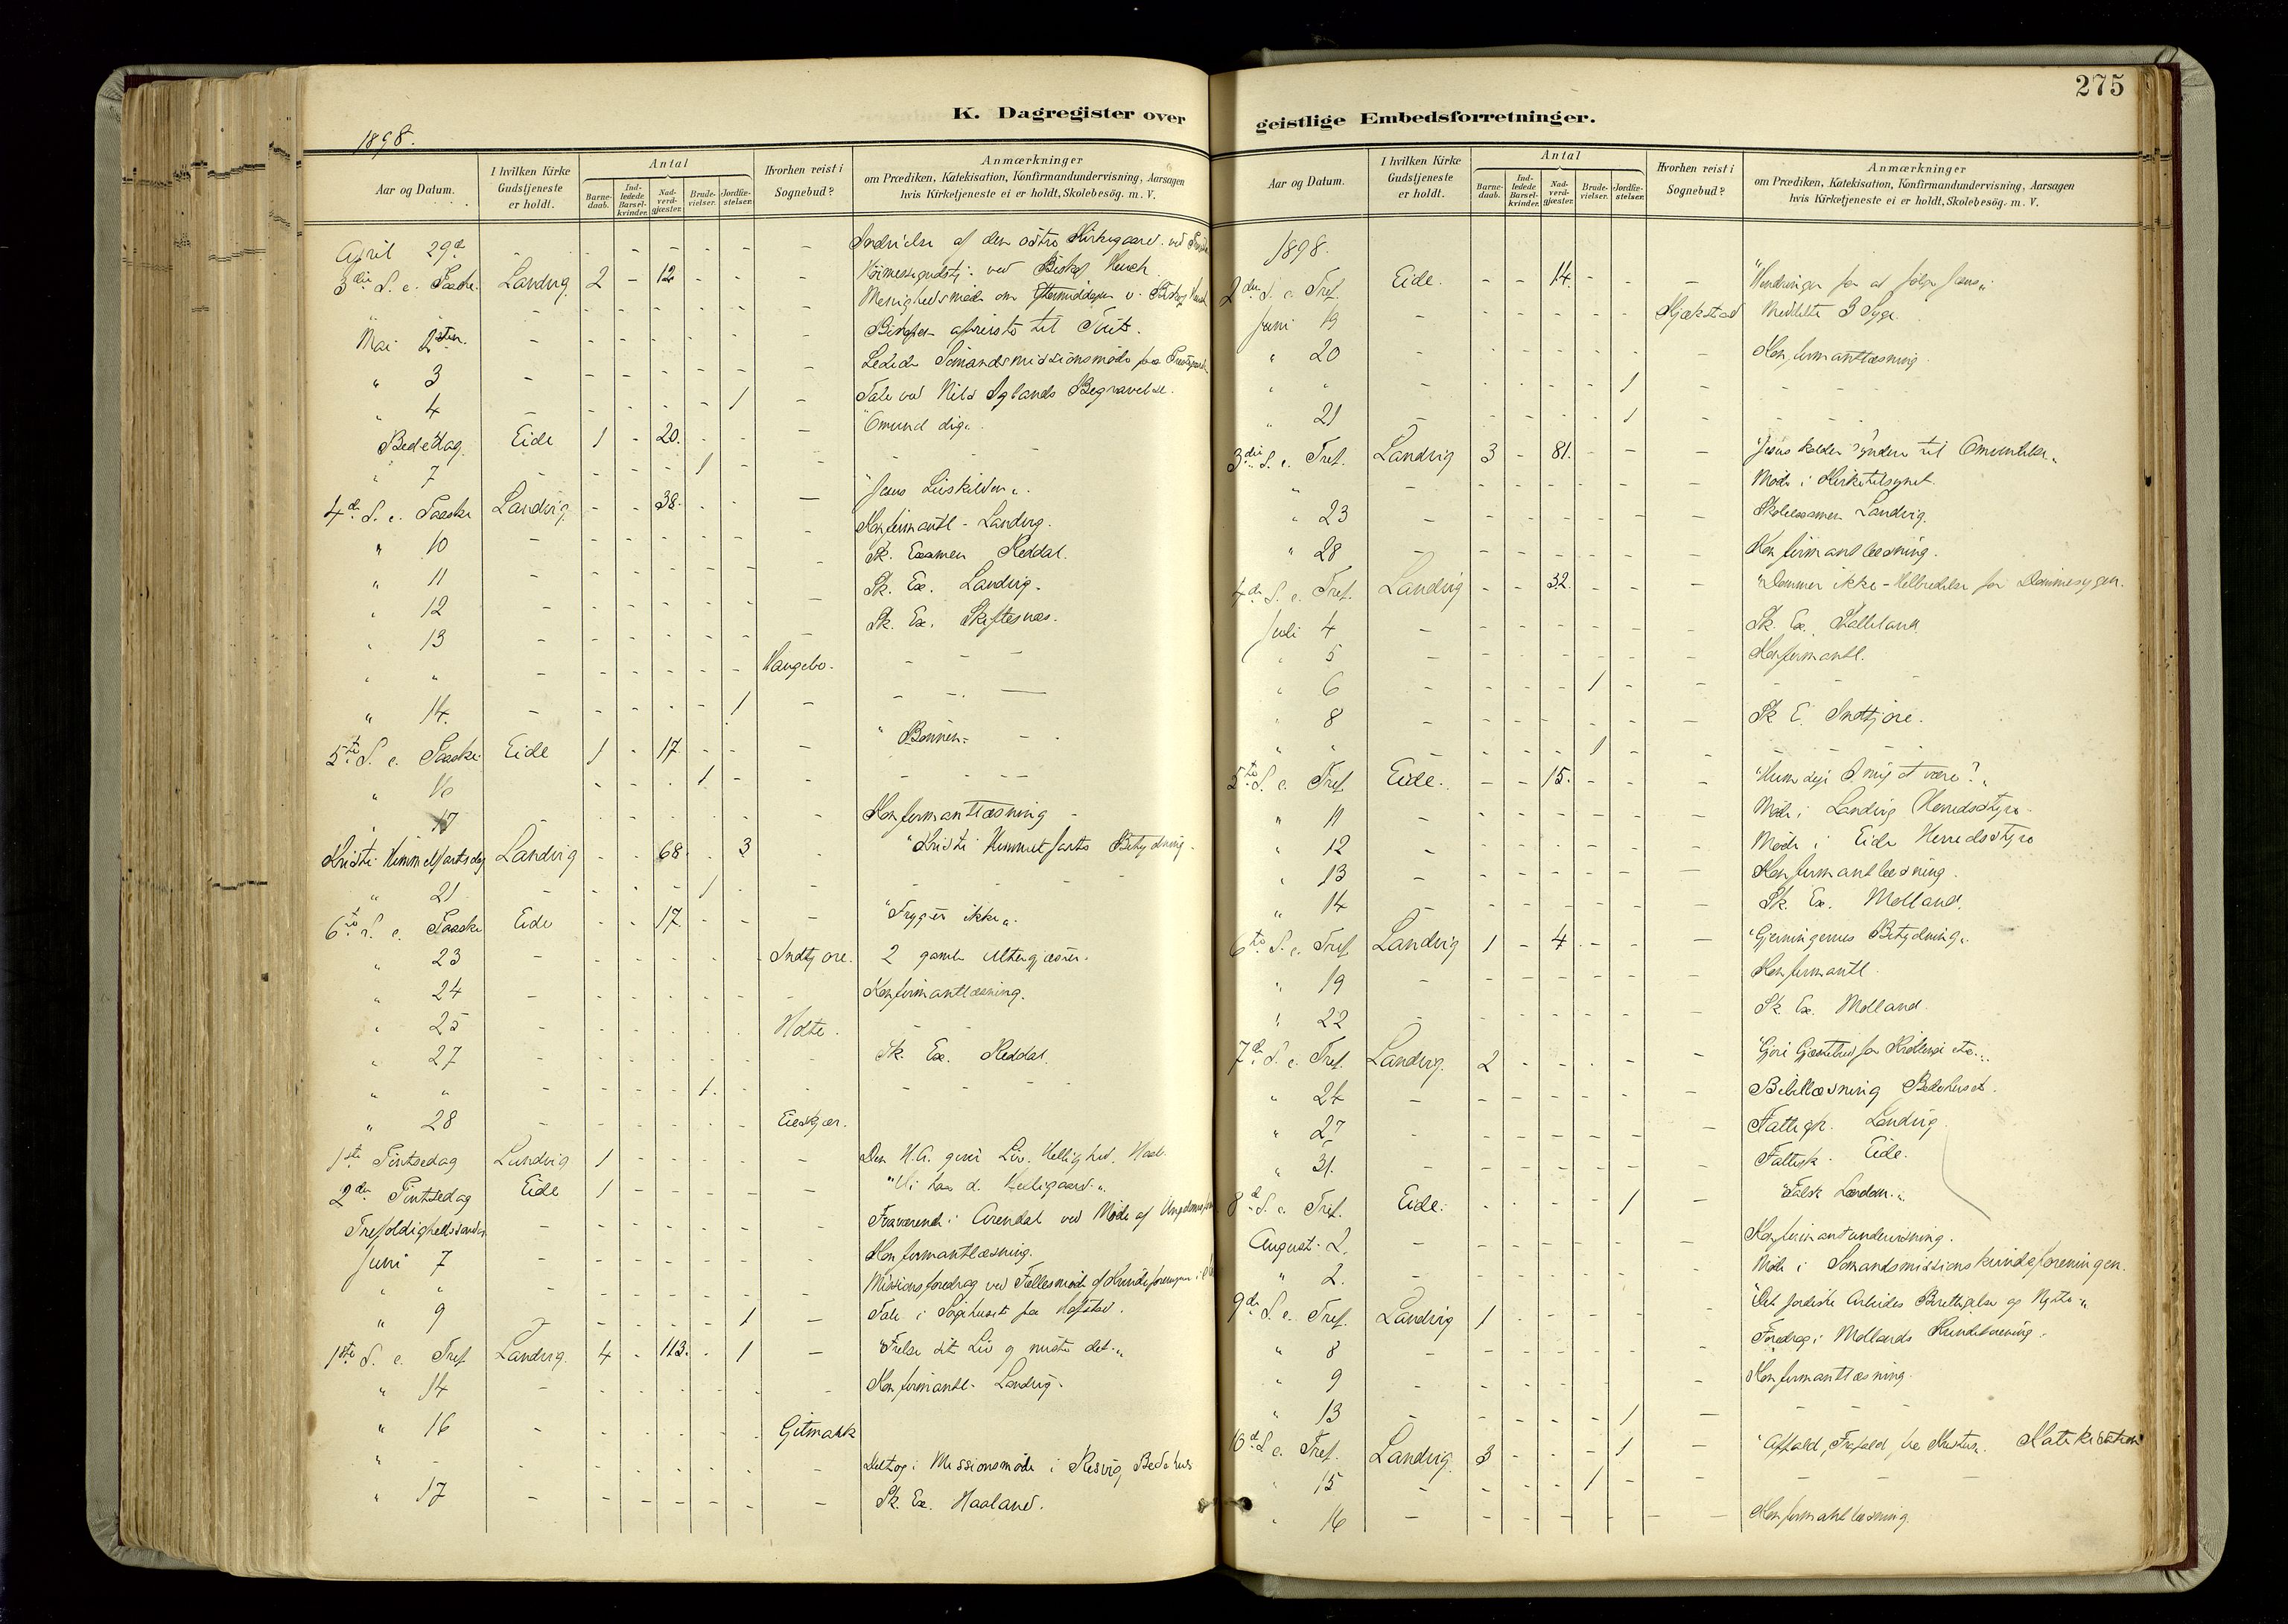 275
K. Dagregister over
geistlige Embedsforretninger.
1898.
Aar og Datum.
I hvilken Kirke Gudstjeneste er holdt.
Antal
Barne-daab.
Ind-ledede Barsel-kvinder.
Nad-verd-gjæster.
Brude-vielser.
Jordfæ-stelser.
Hvorhen reist i Sognebud?
Anmærkninger
om Prædiken, Katekisation, Konfirmandundervisning, Aarsagen
hvis Kirketjeneste ei er holdt, Skolebesög. m. V.
April 29de - - - - - - - Indvielse af den østre Kirkegaard ved
3die S. e. Paaske. Landvig 2 - 12 - - - ved Biskop Heuch
- - - - - - - Menighedsmøde om Eftermiddagen v. Biskop
Mai 2den - - - - - - - Bispen afreiste til
" 3 - - - - - - - Sømandsmissionsmøde
" 4 - - - - - 1 - Tale ved Nils Aglands Begravelse.
Bededag Eide 1 - 20. - - - "Omvend dig"
" 7 - - - - 1 - - -
4de S. e. Paaske Landvig - - 38. - - - "Jesus Livskilden".
" 10 - - - - - - - Konfirmantl. Landvig.
" 11 - - - - - - - Sk. Examen Reddal.
" 12 - - - - - - - Sk. Ex. Landvig.
" 13 - - - - - - - Sk. Ex. Skiftesnæs.
" " - - - - - - Haugebo. - - -
" 14. - - - - - 1 - - -
5te S. e. Paaske Eide 1 - 17. - - - "Bønnen" -
" 16 - - - - 1 - - - -
" 17 - - - - - - - Konfirmantlæsning -
Kristi Himmelfartsdag Landvig - - 68. - 3 - "Kristi Himmelfarts Betydning.
" 21 - - - - 1 - - - -
6te S. e. Paaske Eide - - 17. - - - "Frygter ikke".
" 23 - - - - - - Indtjøre. 2 gamle Altergjæster.
" 24 - - - - - - - Konfirmantlæsning.
" 25 - - - - - - Holte. - -
" 27 - - - - - - - Sk. Ex. Reddal.
" " - - - - 1. - - - -
" 28 - - - - - - Eieskjær.
1ste Pintsedag Landvig 1 - - - - - Den H.A. giver Liv, Hellighed, Haab.
2den Pintsedag Eide 1 - - - - -
Trefoldighedssøndag - - - - - - Fraværende i Arendal ved Møde af
Juni 7 - - - - - - - Konfirmantlæsning.
" " - - - - - - - Missionsforedrag ved Fællesmøde af Kvindeforeninger i
" 9 - - - - - 1 - Tale i Sørgehuset
1ste S. e. Tref. Landvig. 4 - 113. - 1 - "Frelse sit Liv og miste det".
" 14 - - - - - - - Konfirmantl. Landvig.
" 16 - - - - - - Gitmark
" - - - - - - - Deltog i Missionsmøde i Resvig Bedehus
" 17 - - - - - - - Sk. Ex. Haaland.
Aar og Datum.
I hvilken Kirke Gudstjeneste er holdt.
Antal
Barne-daab.
Ind-ledede Barsel-kvinder.
Nad-verd-gjæster.
Brude-vielser.
Jordfæ-stelser.
Hvorhen reist i Sognebud?
Anmærkninger
om Prædiken, Katekisation, Konfirmandundervisning, Aarsagen
hvis Kirketjeneste ei er holdt, Skolebesög. m. V.
1898.
2den S. e. Tref. Eide. - - 14. - - - "Hindringer for at følge Jesus".
Juni 19 - - - - - - Meddelte 3 Syge.
" 20 - - - - - - - Konfirmantlæsning.
" " - - - - - 1 - - -
" 21 - - - - - 1 - - -
3die S. e. Tref. Landvig 3 - 81. - - - "Jesus kalder Syndere til Omvendelse".
" - - - - - - - Møde i Kirketilsynet.
" 23 - - - - - - - Skoleexamen Landvig.
" 28 - - - - - - - Konfirmantlæsning.
4de S. e. Tref. Landvig - - 32. - - - "Dømmer ikke - Helbredelse for Dømmesygen.
Juli 4 - - - - - - - Sk. Ex.
" 5 - - - - - - - Konfirmantl.
" 6 - - - - 1 - - - -
" 8 - - - - - - - Sk. E. Indtjøre.
" " - - - - 1 - - - -
5te S. e. Tref. Eide. - - 15. - - -
" 11 - - - - - - - Møde i Landvig Herredsstyre.
" 12 - - - - - - - Møde i Eide Herredsstyre
" 13 - - - - - - - Konfirmantlæsning.
" 14 - - - - - - - Sk. Ex. Molland.
6te S. e. Tref. Landvig 1 - 4 - - - "Gjerningernes Betydning".
" 19 - - - - - - - Konfirmantl.
" 22 - - - - - - - Sk. Ex. Molland.
7de S. e. Tref. Landvig. 2 - - - - -
" 24 - - - - - - - Bibellæsning Bedehuset.
" 27 - - - - - - - Fattigk. Landvig
" 31. - - - - - - - Fattigk. Eide.
8de S. e. Tref. Eide. - - - - 1 - "Falsk Lærdom".
August 2. - - - - - - - Konfirmantundervisning.
" 2. - - - - - - - Møde i Sømandsmissionskvindeforeningen.
9de S. e. Tref. Landvig 1 - - - - - "Det jordiske Arbeides Berettigelse og Nytte".
" 8 - - - - - - - Foredrag i Mollands Kvindeforening.
" 9 - - - - - - - Konfirmantlæsning.
" 13 - - - - - 1 - - - -
10de S. e. Tref. Landvig. 3 - - - 1 - "Affald, Frafald, Katekisation
" 15 - - - - 1 - - - -
" 16 - - - - - - - Konfirmantlæsning.